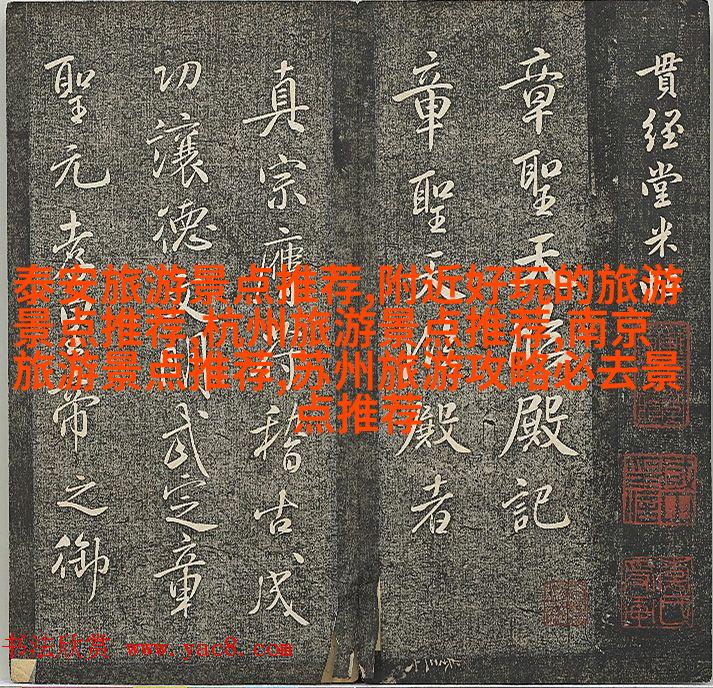 貫經堂米
章聖天臨殿記
章聖天臨殿者
真宗膺符稽古成
功讓德文明武定章
聖元孝皇帝之御
泰安旅游景点推荐,附近好玩的旅游
景点推荐,杭州旅游景点推荐,南京
旅游景点推荐,苏州旅游攻略必去景
点推荐
书法欣赏 www.yac8.com